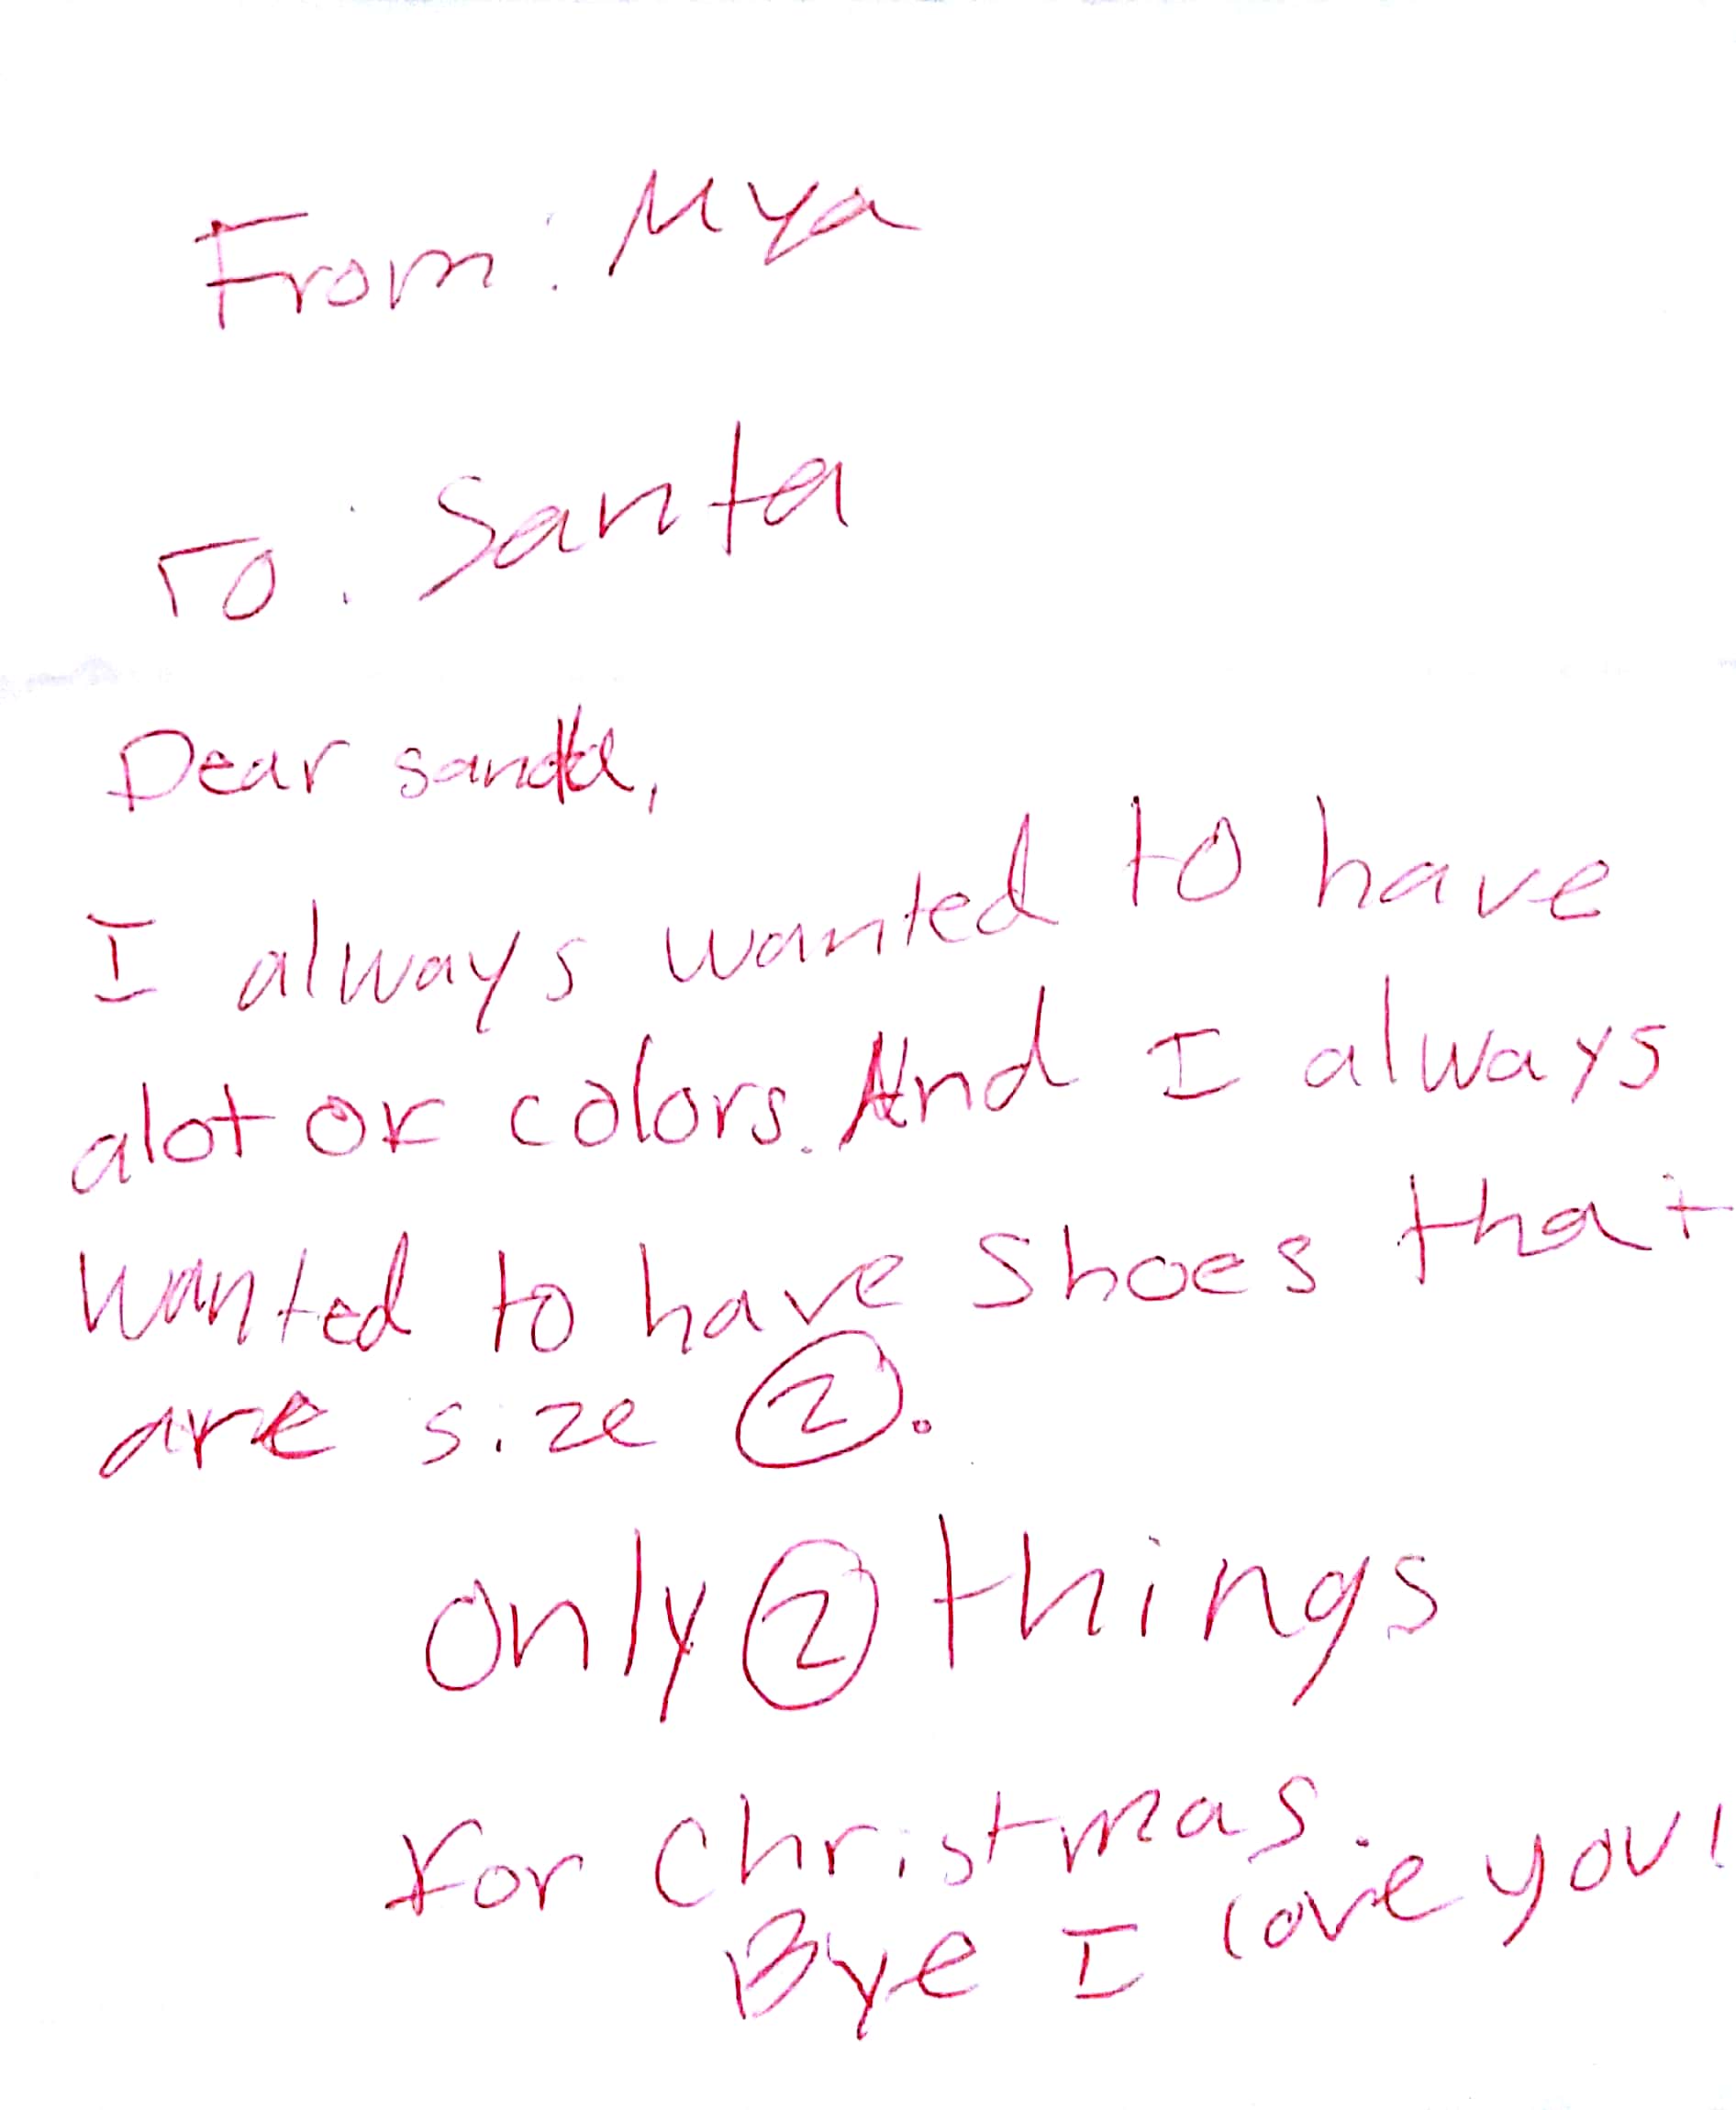 From: Mya
To: Santa
Dear santa,
I always wanted to have
alot of colors. And I always
wanted to have shoes that
are size 2.
only 2 things
for Christmas.
Bye I love you!